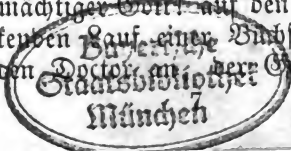 mächtiger Gott! auf den
kenden Lauf einer Büchs
den Doctor an, der
Bayerische
Staatsbibliothek
München